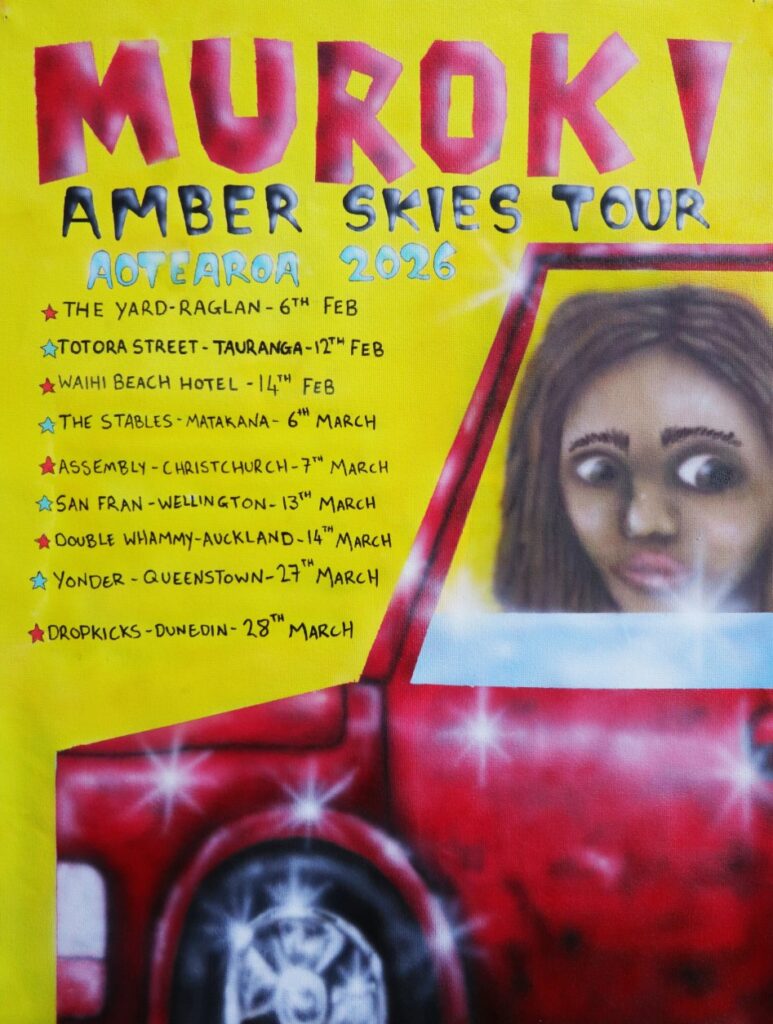 MUROKI
AMBER SKIES TOUR
AOTEAROA 2026
THE YARD-RAGLAN-6TH FEB
TOTORA STREET-TAURANGA-12TH FEB
WAIHI BEACH HOTEL-14TH FEB
THE STABLES-MATAKANA-6TH MARCH
ASSEMBLY-CHRISTCHURCH-7TH MARCH
SAN FRAN-WELLINGTON-13TH MARCH
DOUBLE WHAMMY-AUCKLAND-14TH MARCH
YONDER-QUEENSTOWN-27TH MARCH
DROPKICKS-DUNEDIN-28TH MARCH